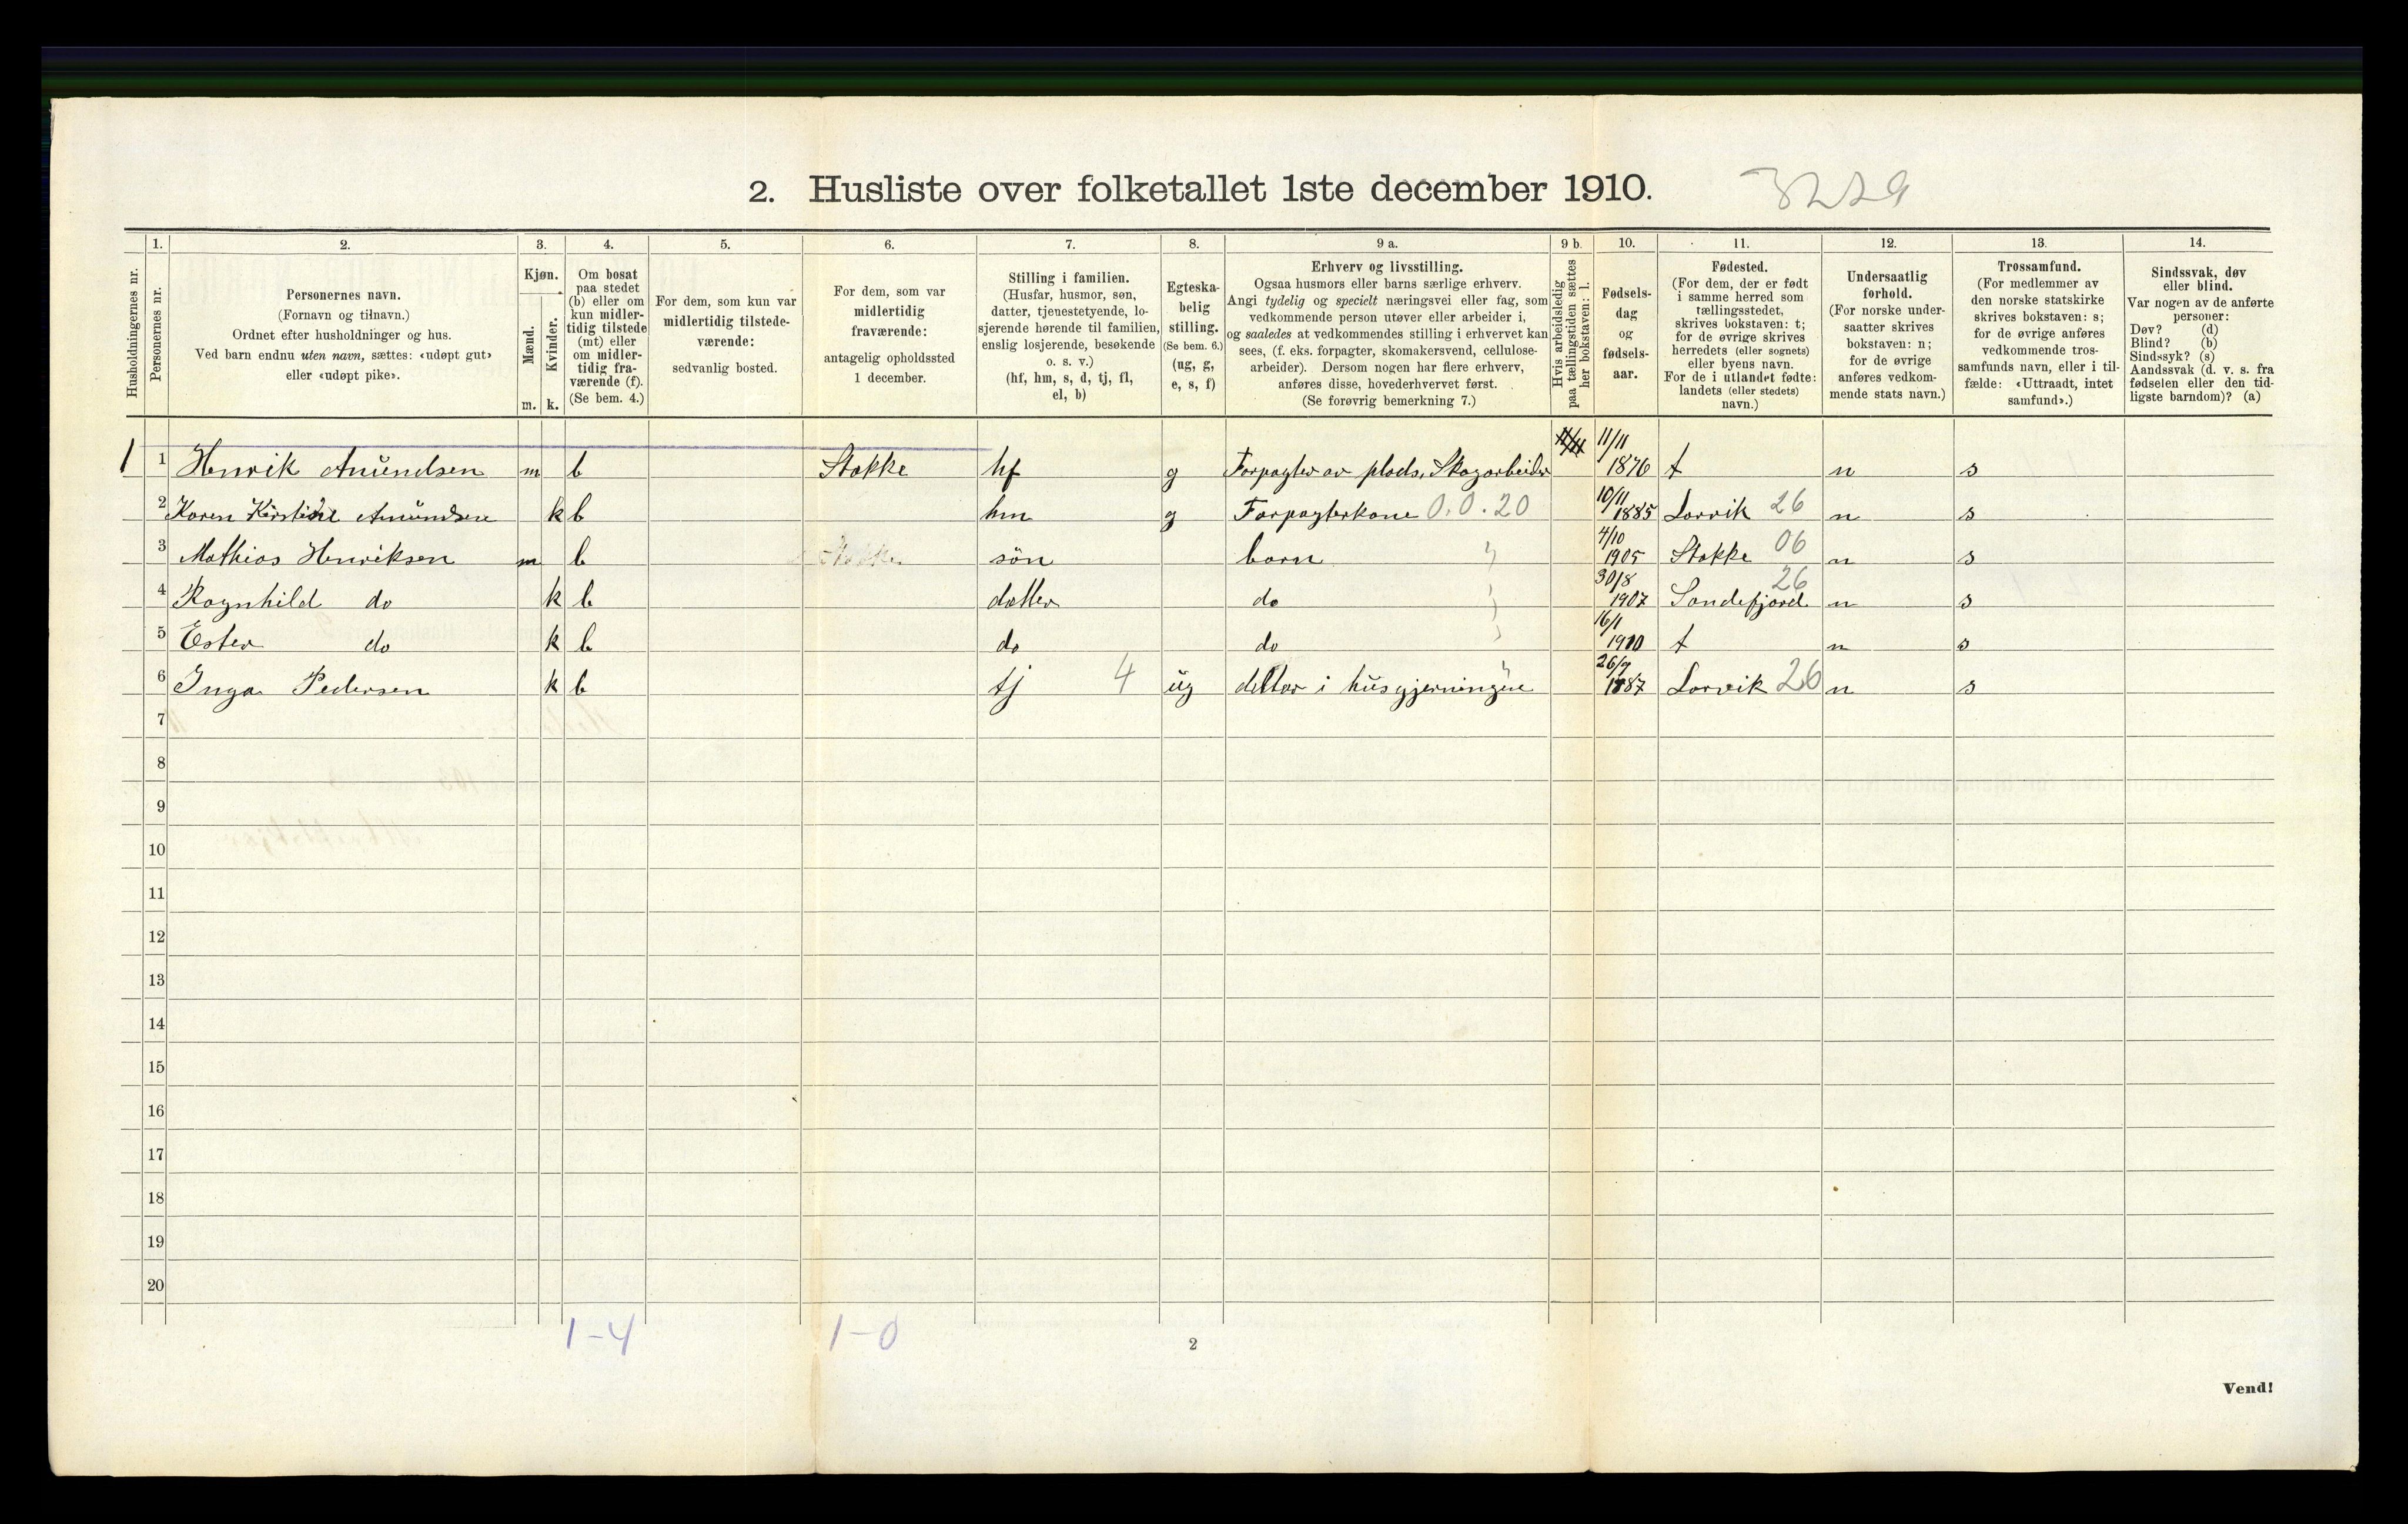 2. Husliste over folketallet 1ste december 1910. 3229
1. 2. 3. 4. 5. 6. 7. 8. 9 a. 9 b. 10. 11. 12. 13. 14.
Husholdningernes nr.
Personernes nr.
Personernes navn.
(Fornavn og tilnavn.)
Ordnet efter husholdninger og hus.
Ved barn endnu uten navn, sættes: «udøpt gut»
eller «udøpt pike».
Kjøn.
Mænd.
Kvinder.
m. k.
Om bosat
paa stedet
(b) eller om
kun midler-
tidig tilstede
(mt) eller
om midler-
tidig fra-
værende (f).
(Se bem. 4.)
For dem, som kun var
midlertidig tilstede-
værende:
sedvanlig bosted.
For dem, som var
midlertidig
fraværende:
antagelig opholdssted
1 december.
Stilling i familien.
(Husfar, husmor, søn,
datter, tjenestetyende, lo-
sjerende hørende til familien,
enslig losjerende, besøkende
o. s. v.)
(hf, hm, s, d, tj, fl,
el, b)
Egteska-
belig
stilling.
(Se bem. 6.)
(ug, g,
e, s, f)
Erhverv og livsstilling.
Ogsaa husmors eller barns særlige erhverv.
Angi tydelig og specielt næringsvei eller fag, som
vedkommende person utøver eller arbeider i,
og saaledes at vedkommendes stilling i erhvervet kan
sees, (f. eks. forpagter, skomakersvend, cellulose-
arbeider). Dersom nogen har flere erhverv,
anføres disse, hovederhvervet først.
(Se forøvrig bemerkning 7.)
Hvis arbeidsledig
paa tællingstiden sættes
her bokstaven: l.
Fødsels-
dag
og
fødsels-
aar.
Fødested.
(For dem, der er født
i samme herred som
tællingsstedet,
skrives bokstaven: t;
for de øvrige skrives
herredets (eller sognets)
eller byens navn.
For de i utlandet fødte:
landets (eller stedets)
navn.)
Undersaatlig
forhold.
(For norske under-
saatter skrives
bokstaven: n;
for de øvrige
anføres vedkom-
mende stats navn.)
Trossamfund.
(For medlemmer av
den norske statskirke
skrives bokstaven: s;
for de øvrige anføres
vedkommende tros-
samfunds navn, eller i til-
fælde: «Uttraadt, intet
samfund».)
Sindssvak, døv
eller blind.
Var nogen av de anførte
personer:
Døv? (d)
Blind? (b)
Sindssyk? (s)
Aandssvak (d. v. s. fra
fødselen eller den tid-
ligste barndom)? (a)
1 1 Henrik Amundsen m b Stokke hf g Forpagter av plads, Skogarbeider 11/11 1876 t n s
2 Karen Kirstine Amundsen k b hm g Forpagterkone 0.0.20 10/11 1885 Larvik 26 n s
3 Mathias Henriksen m b Stokke søn barn 4/10 1905 Stokke 06 n s
4 Ragnhild do k b datter do 30/8 1907 Sandefjord 26 n s
5 Ester do k b do do 16/1 1910 t n s
6 Inga Pedersen k b tj 4 ug deltar i husgjerningen 26/9 1887 Larvik 26 n s
7
8
9
10
11
12
13
14
15
16
17
18
19
20
1-4 1-0
2
Vend!